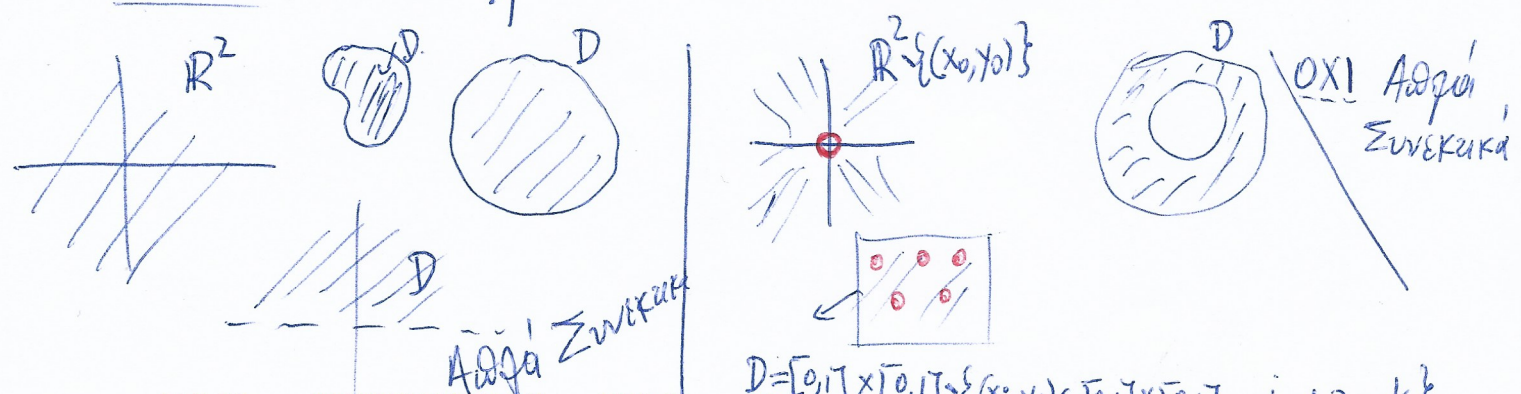 ℝ²
D
D
D
Απλά Συνεκτικ
ℝ²∖{(x₀,y₀)}
D
ΟΧΙ Απλά
Συνεκτικά